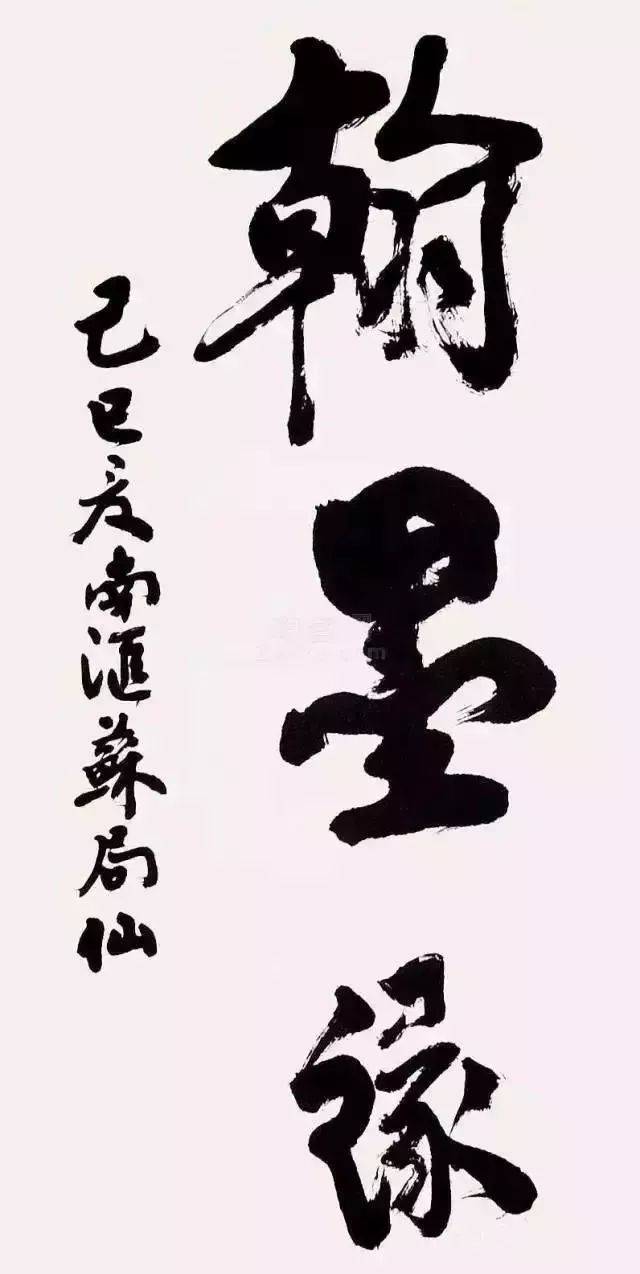 翰墨缘
己巳夏南汇蘇局仙